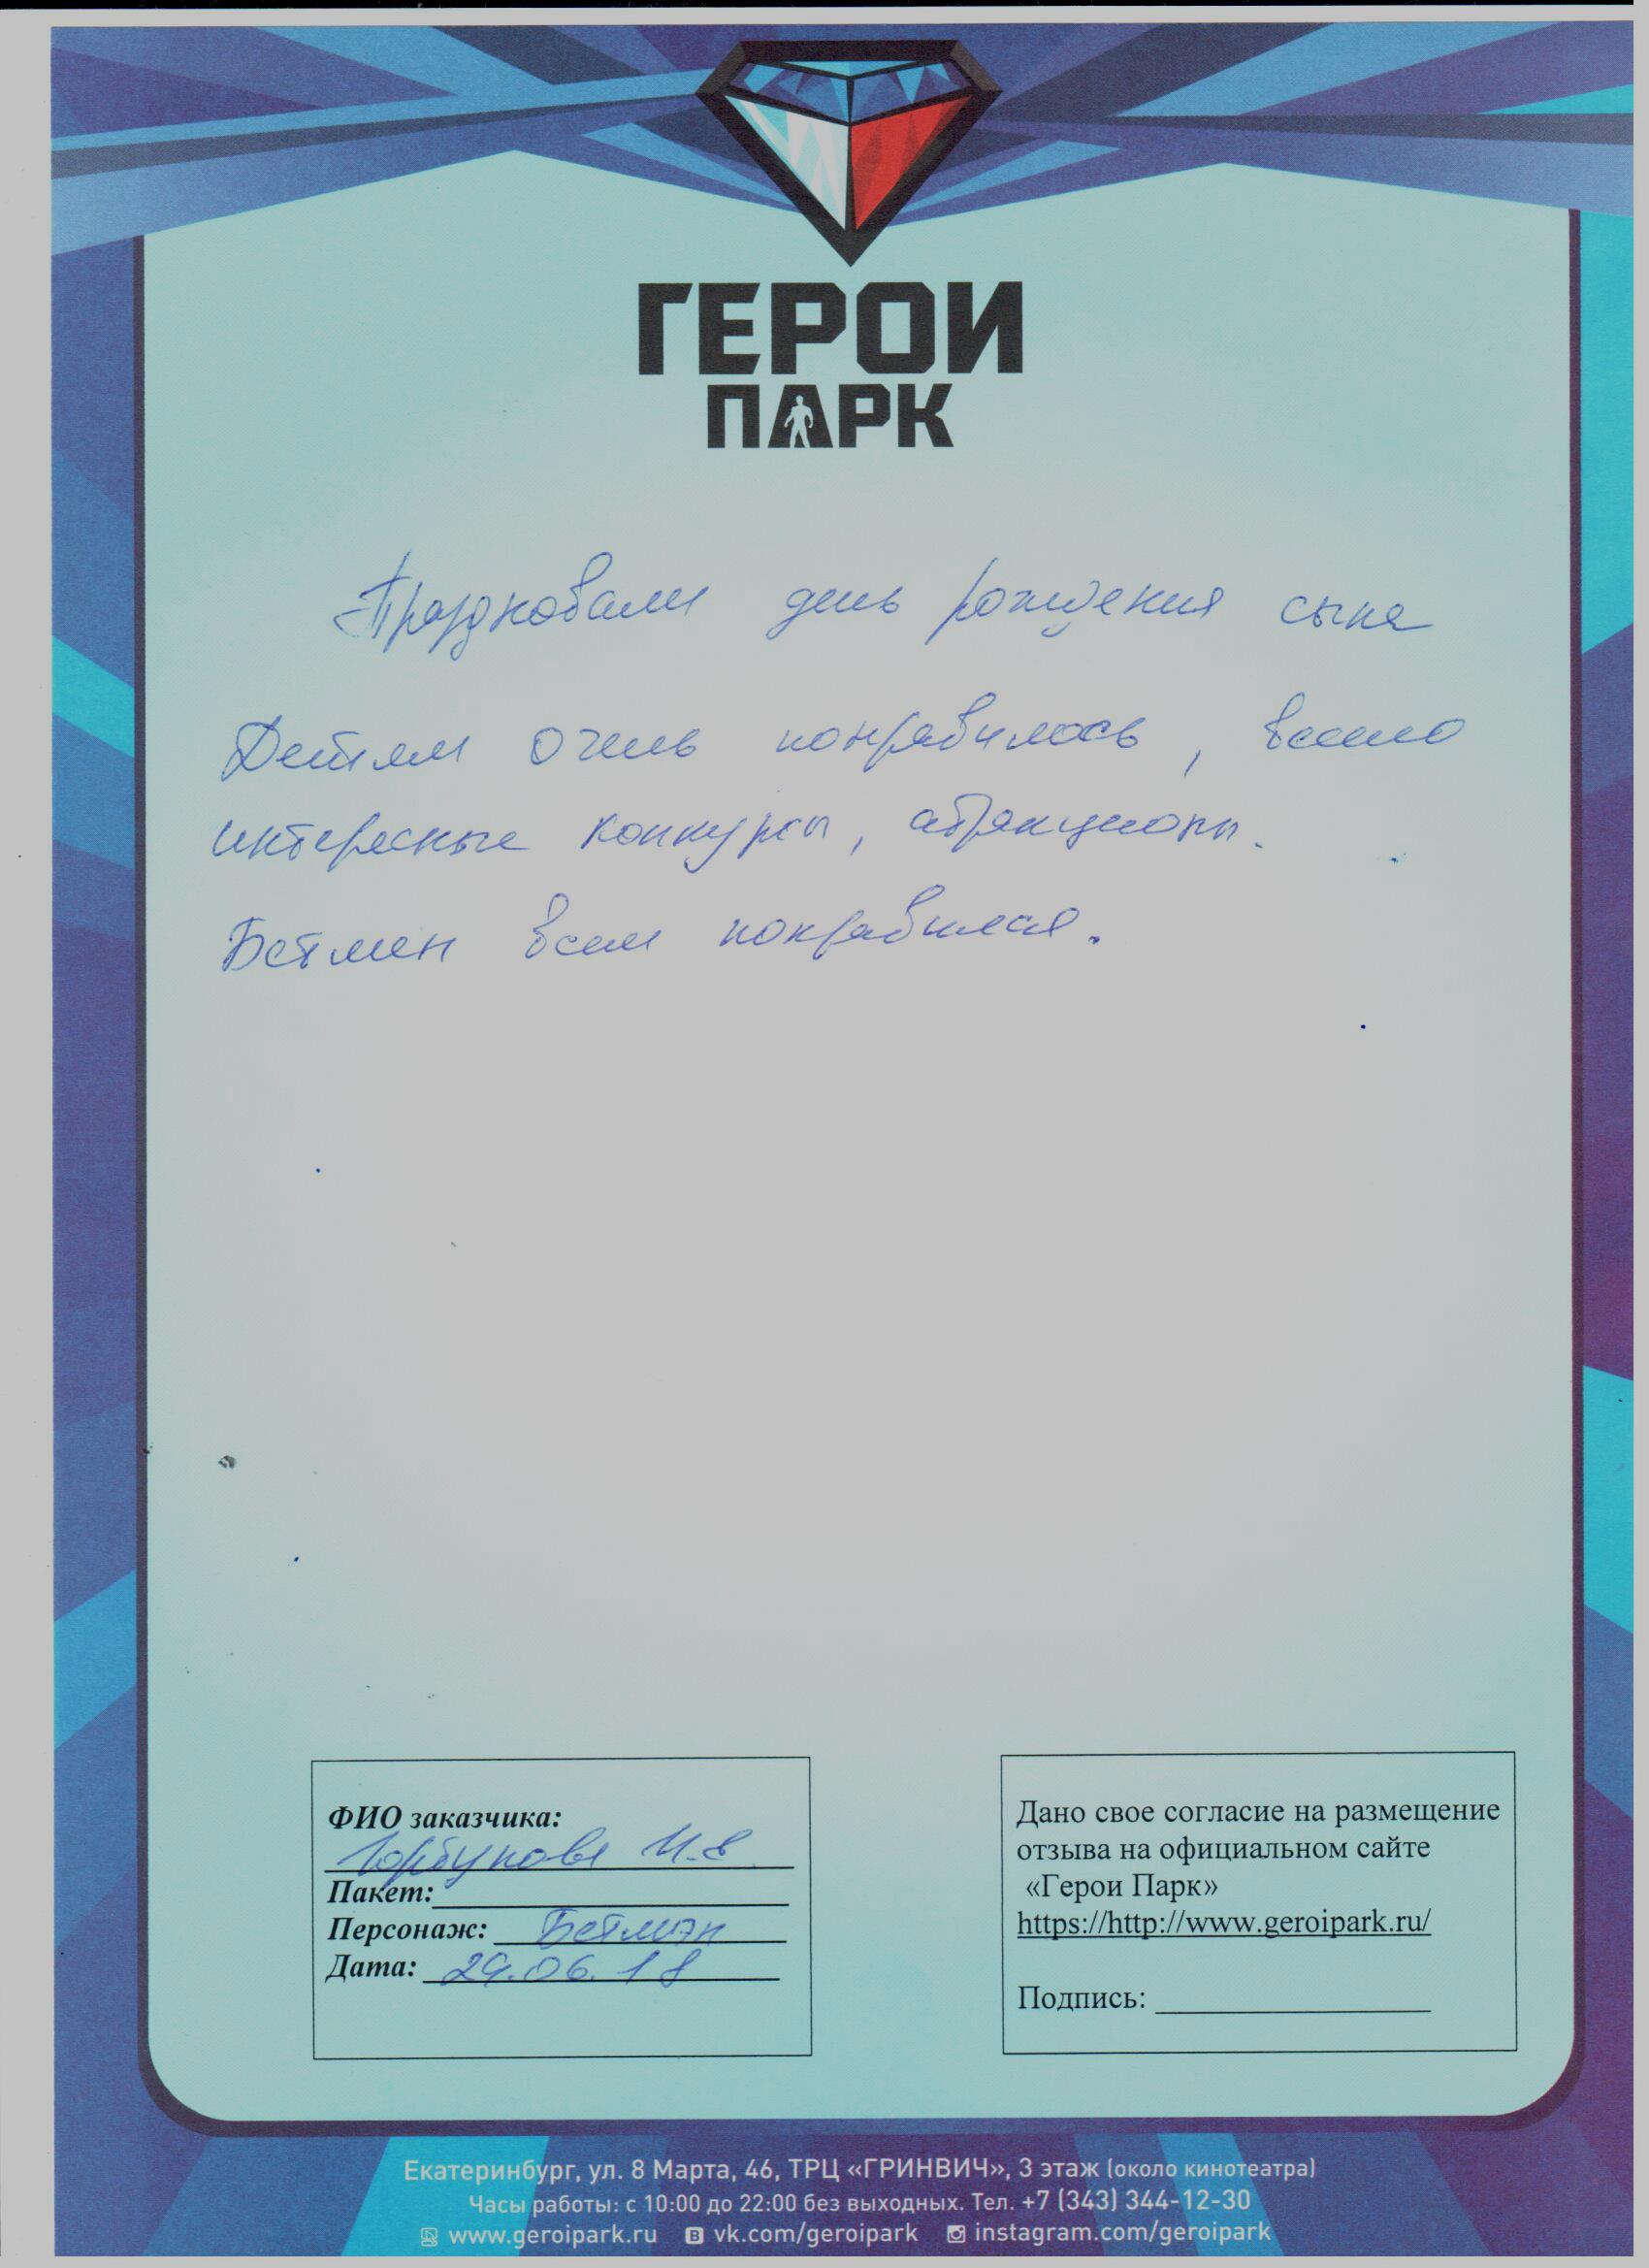 ГЕРОИ
ПАРК
Праздновали день рождения сына
Детям очень понравилось,
интересные конкурсы, атракционы.
Бетмен всем понравился.
ФИО заказчика:
Горбунова И.В
Пакет:
Персонаж: Бетмэн
Дата: 29.06.18
Дано свое согласие на размещение
отзыва на официальном сайте
«Герои Парк»
https://http://www.geroipark.ru/
Подпись:
Екатеринбург, ул. 8 Марта, 46, ТРЦ «ГРИНВИЧ», 3 этаж (около кинотеатра)
Часы работы: с 10:00 до 22:00 без выходных. Тел. +7 (343) 344-12-30
www.geroipark.ru vk.com/geroipark instagram.com/geroipark